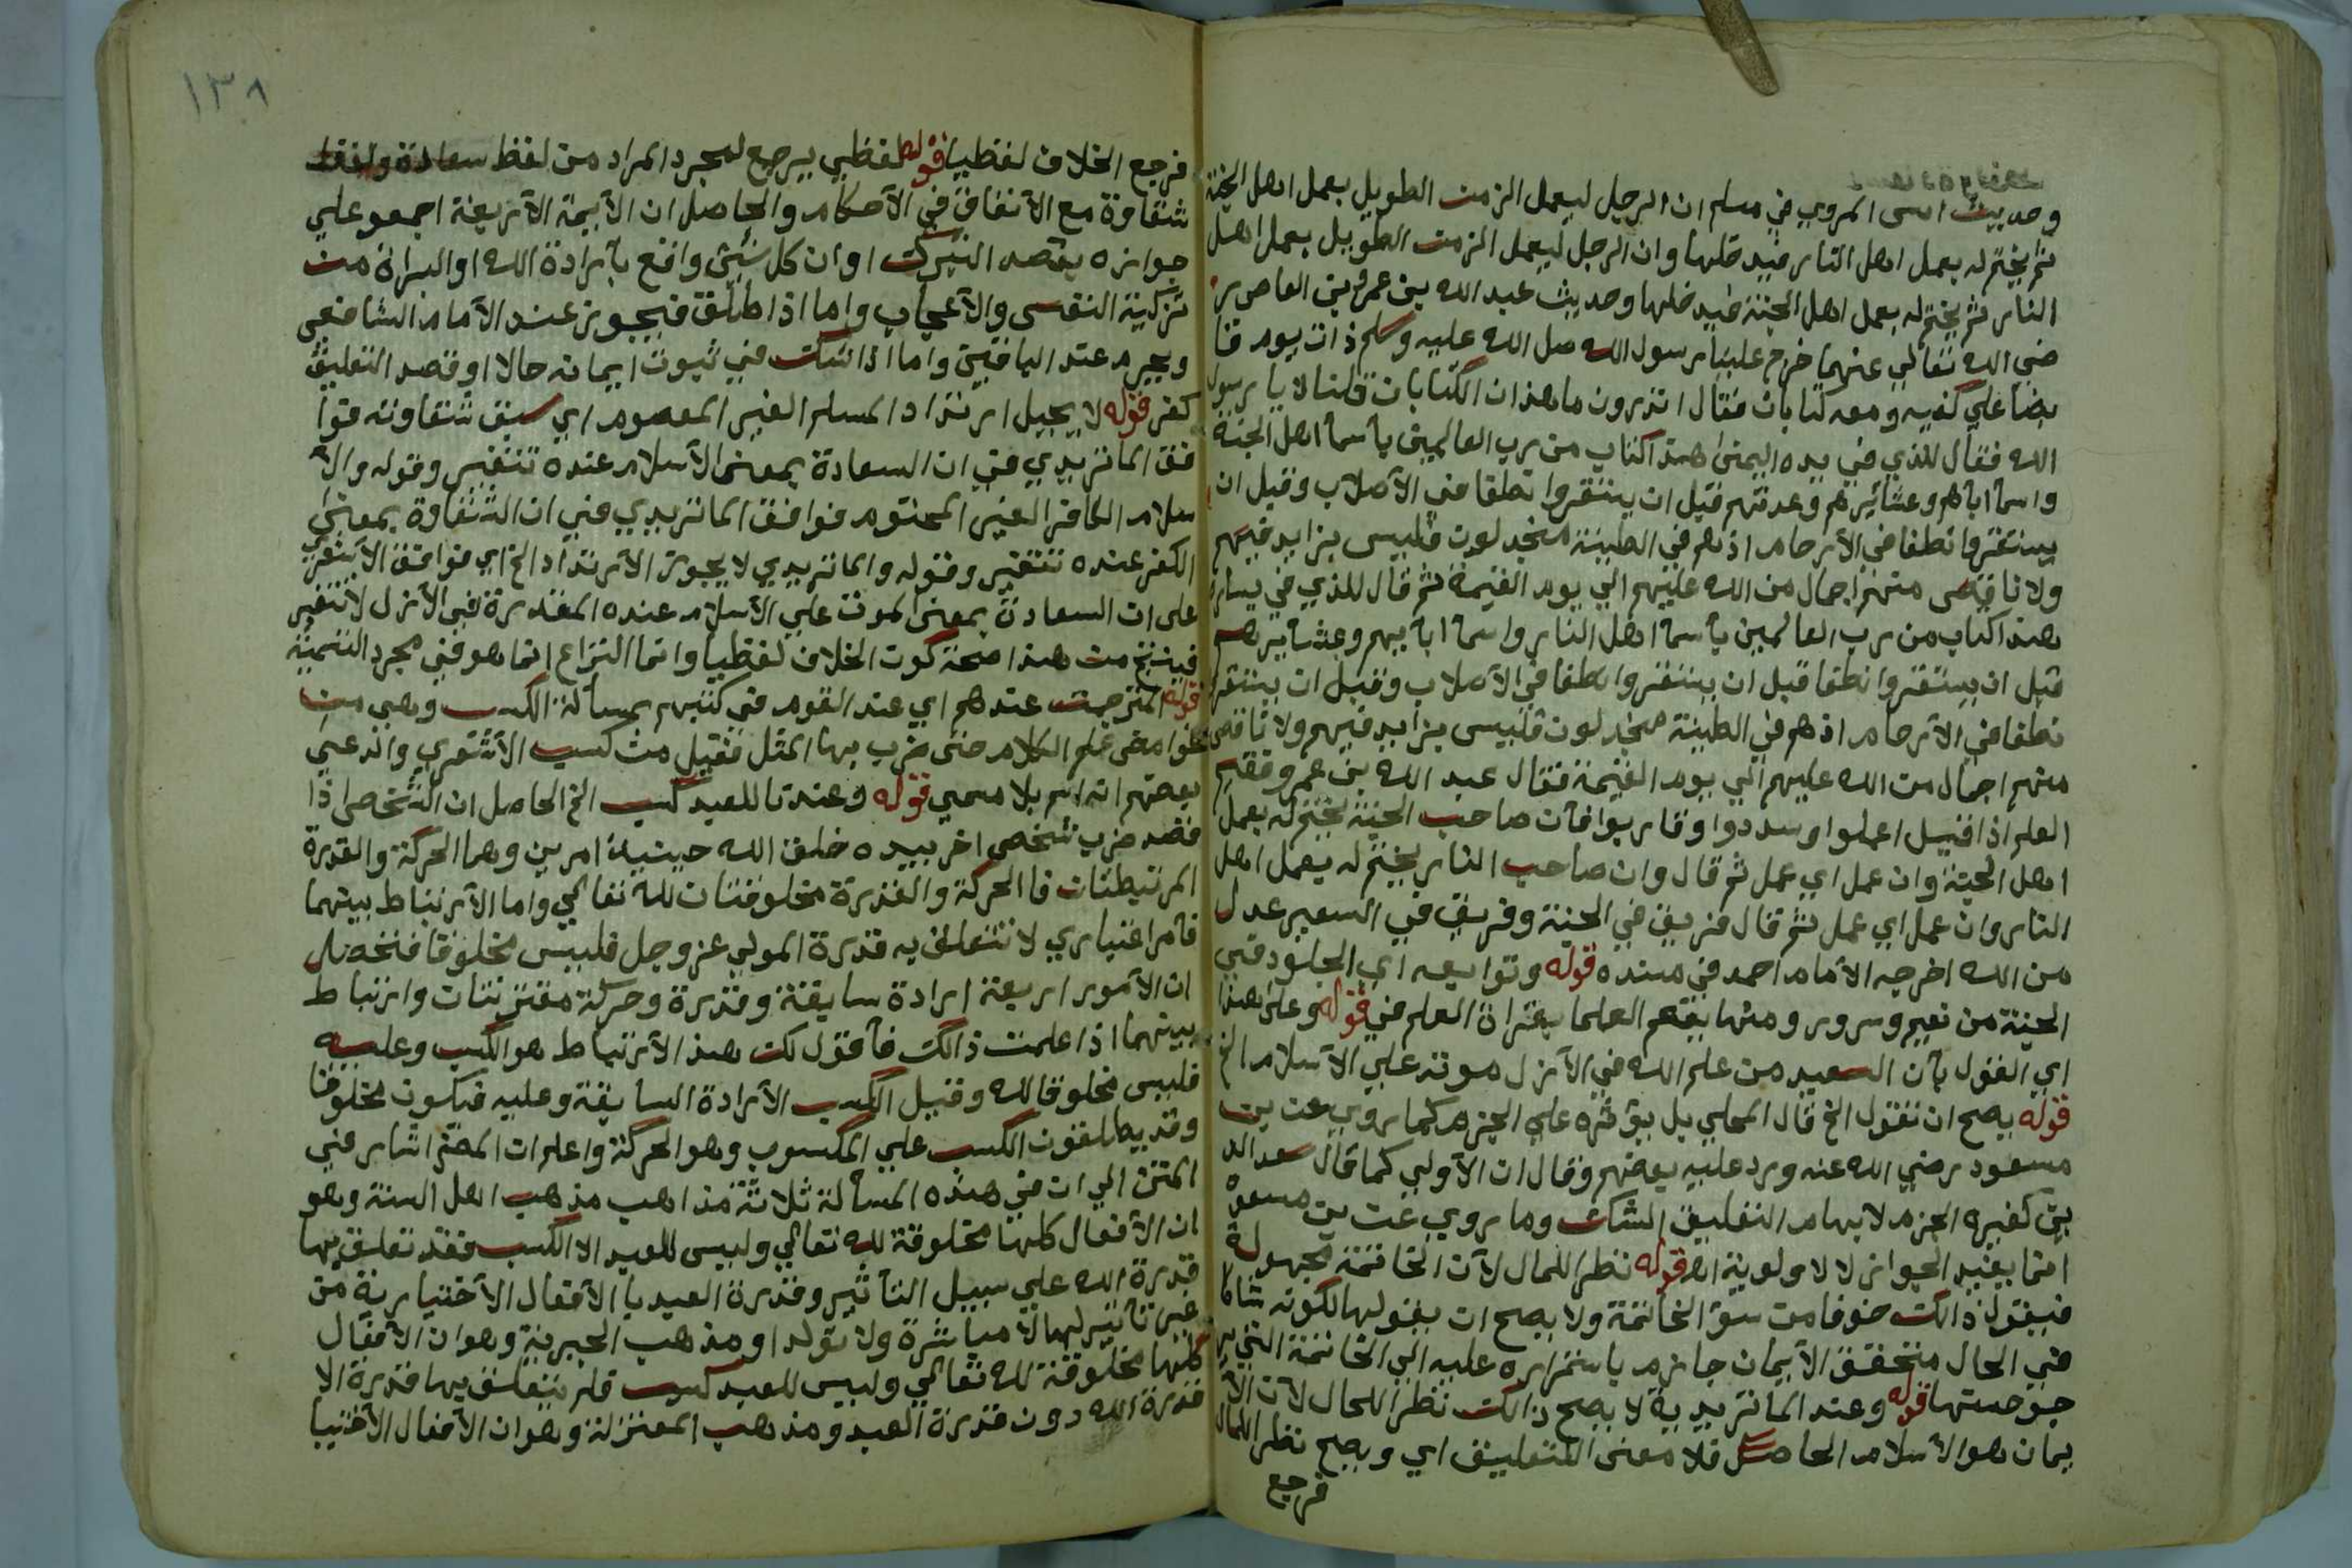 وحديث انس المروي في مسلم ان الرجل ليعمل الزمن الطويل بعمل اهل الجنة
ثم يختم له بعمل اهل النار فيدخلها وان الرجل ليعمل الزمن الطويل بعمل اهل
النار ثم يختم له بعمل اهل الجنة فيدخلها وحديث عبد الله بن عمرو بن العاص ر
ضي الله تعالي عنهما خرج علينا رسول الله صل الله عليه وسلم ذات يوم قا
بضا علي كفيه ومعه كتابان فقال اتدرون ما هذان الكتابان قلنا لا يا رسول
الله فقال للذي في يده اليمنى هذا كتاب من رب العالمين بأسمآ اهل الجنة
واسمآ ابآهم وعشائرهم وعدتهم قبل ان يستقروا نطفا في الآصلاب وقبل ان
يستقروا نطفا في الأرحام اذ هم في الطينة منجدلون فليس بزايد فيهم
ولا ناقص منهم اجمال من الله عليهم الي يوم القيمة ثم قال للذي في يساره
هذا كتاب من رب العالمين بأسمآ اهل النار واسمآ ابآيهم وعشآيرهم
قبل ان يستقروا نطفا قبل ان يستقروا نطفا في الآصلاب وقبل ان يستقروا
نطفا في الآرحام اذ هم في الطينة منجدلون فليس بزايد فيهم ولا ناقص
منهم اجمال من الله عليهم الي يوم القيمة فقال عبد الله بن عمرو ففيم
العلم اذا فقيل اعملوا وسددوا وقاربوا فآن صاحب الجنة يختم له بعمل
اهل الجنة وان عمل اي عمل ثم قال وان صاحب النار يختم له بعمل اهل
النار وان عمل اي عمل ثم قال فريق في الجنة وفريق في السعير عدل
من الله اخرجه الأمام احمد في مسنده قوله وتوابعه اي الخلود في
الجنة من نعيم وسرور ومنها بفهم العلما بقراة العلم في قوله وعلى هذا
اي القول بآن السعيد من علم الله في الآزل موته علي الآسلام الخ
قوله يصح ان نقول الخ قال المحلي بل يؤثره علي الجزم كما روي عن بن
مسعود رضي الله عنه ورد عليه بعضهم وقال ان الآولي كما قال سعد الد
ين كغيره الجزم لايهام التعليق الشك وما روي عن بن مسعود
انما يفيد الجواز لا الاولوية اه قوله نظرا للمال لآن الخاتمة مجهولة
فيقول ذالك خوفا من سوء الخاتمة ولا يصح ان يقولها لكونه شاكا
في الحال متحقق الآيمان جازم باستمراره عليه الي الخاتمة التي ير
جو حسنها قوله وعند الماتريدية لا يصح ذالك نظرا للحال لآن الآ
يمان هو الآسلام الحاصل فلا معنى للتعليق اي ويصح نظرا للمال
فرجع
١٣٨
فرجع الخلاف لفظيا قوله لفظي يرجع لمجرد المراد من لفظ سعادة ولفظ
شقاوة مع الآتفاق في الآحكام والحاصل ان الآيمة الآربعة اجمعوا علي
جوازه بقصد التبرك او ان كل شيئ واقع بآرادة الله او البراة من
تزكية النفس والآعجاب واما اذا اطلق فيجوز عند الآمام الشافعي
ويحرم عند الباقين واما اذا شك في ثبوت ايمانه حالا او قصد التعليق
كفر قوله لا يحيل ارتداد المسلم الغير المعصوم اي سبق شقاوته فوا
فق الماتريدي في ان السعادة بمعنى الآسلام عنده تتغير وقوله والآ
سلام الكافر الغير المختوم فوافق الماتريدي في ان الشقاوة بمعنى
الكفر عنده تتغير وقوله والماتريدي لا يجوز الآرتداد الخ اي فوافق الآشعري
على ان السعادة بمعنى الموت علي الآسلام عنده المقدرة في الآزل لا تتغير
فينتج من هذا صحة كون الخلاف لفظيا وانما النزاع انما هو في مجرد التسمية
قوله المترجمت عندهم اي عند القوم في كتبهم بمسآلة الكسب وهي من
غوامض علم الكلام حتى ضرب بها المثل فقيل من كسب الآشعري وادعي
بعضهم انه اسم بلا مسمي قوله وعندنا للعبد كسب الخ الحاصل ان الشخص اذا
قصد ضرب شخص اخر بيده خلق الله حينيذ امرين وهما الحركة والقدرة
المرتبطتان فا الحركة والقدرة مخلوقتان لله تعالي واما الآرتباط بينهما
فآمر اعتباري لا تتعلق به قدرة المولي عز وجل فليس مخلوقا فتحصل
ان الآمور اربعة ارادة سابقة وقدرة وحركة مقترنتان وارتباط
بينهما اذا علمت ذالك فآقول لك هذ الآرتباط هو الكسب وعليه
فليس مخلوقا لله وقيل الكسب الآرادة السابقة وعليه فيكون مخلوقا
وقد يطلقون الكسب علي المكسوب وهو الحركة واعلم ان المصنف اشار في
المتن الي ان في هذه المسآلة ثلاثة مذاهب مذهب اهل السنة وهو
ان الآفعال كلها مخلوقة لله تعالي وليس للعبد الا الكسب فقد تعلق بها
قدرة الله علي سبيل التآثير وقدرة العبد با الآفعال الآختيارية من
غير تآثير لها لا مباشرة ولا تولدا ومذهب الجبرية وهو ان الآفعال
كلها مخلوقة لله تعالي وليس للعبد كسب فلم يتعلق بها قدرة الا
قدرة الله دون قدرة العبد ومذهب المعتزلة وهو ان الآفعال الآختيا